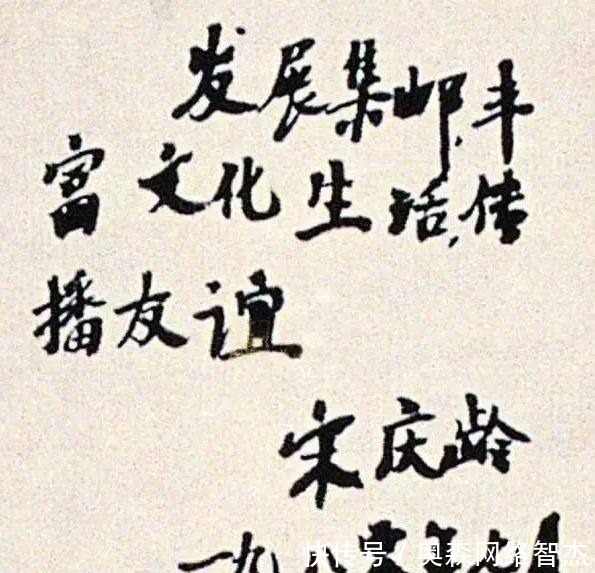 发展集邮,丰
富文化生活,传
播友谊
宋庆龄
一九八
快传号 / 奥森网络智杰